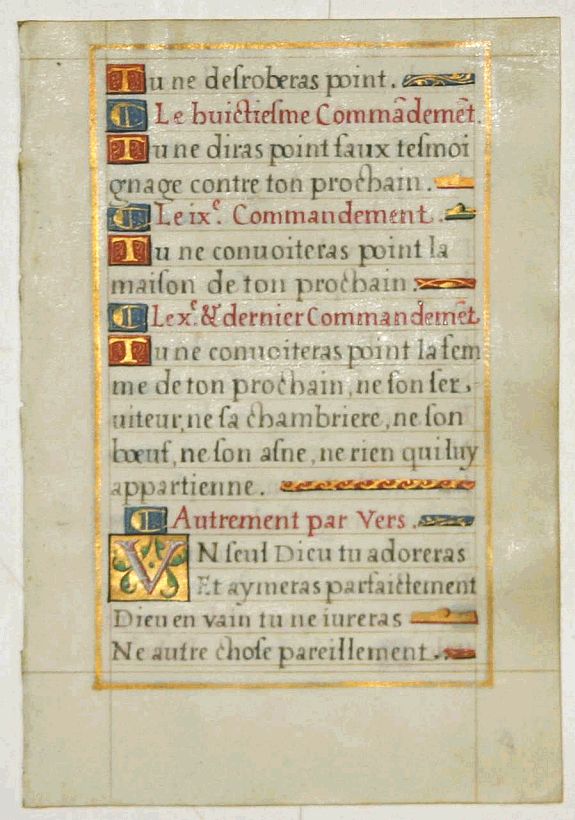 Tu ne desroberas point.
Le huictiesme Commādemēt.
Tu ne diras point faux tesmoi
gnage contre ton prochain.
Le ixᵉ. Commandement.
Tu ne conuoiteras point la
maison de ton prochain.
Le xᵉ. & dernier Commandemēt
Tu ne conuoiteras point la fem
me de ton prochain, ne son ser,
uiteur, ne sa chambriere, ne son
bœuf, ne son asne, ne rien qui luy
appartienne.
Autrement par Vers.
VN seul Dieu tu adoreras
Et aymeras parfaictement
Dieu en vain tu ne iureras
Ne autre chose pareillement.